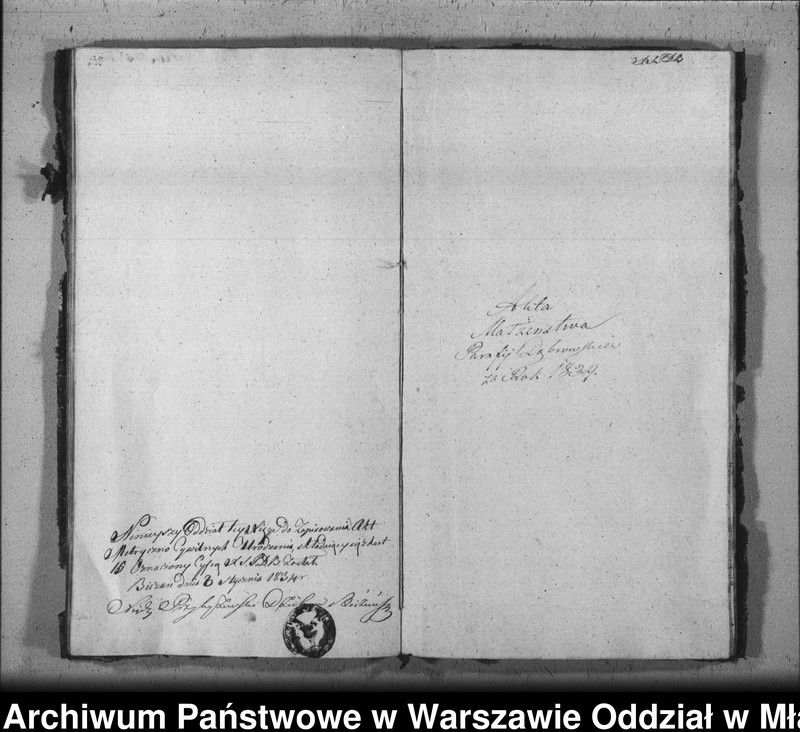 Akta
Małżeństwa
Parafij Dąbrowskiej
za Rok 1834.
Ninieyszy Oddział tey Xięgi do Zapisowania Akt
Metryczno Cywilnych Urodzenia, składaiący się z kart
16 Oznaczony Cyfrą został.
dnia 8 Stycznia 1834 r
Archiwum Państwowe w Warszawie Oddział w Mła